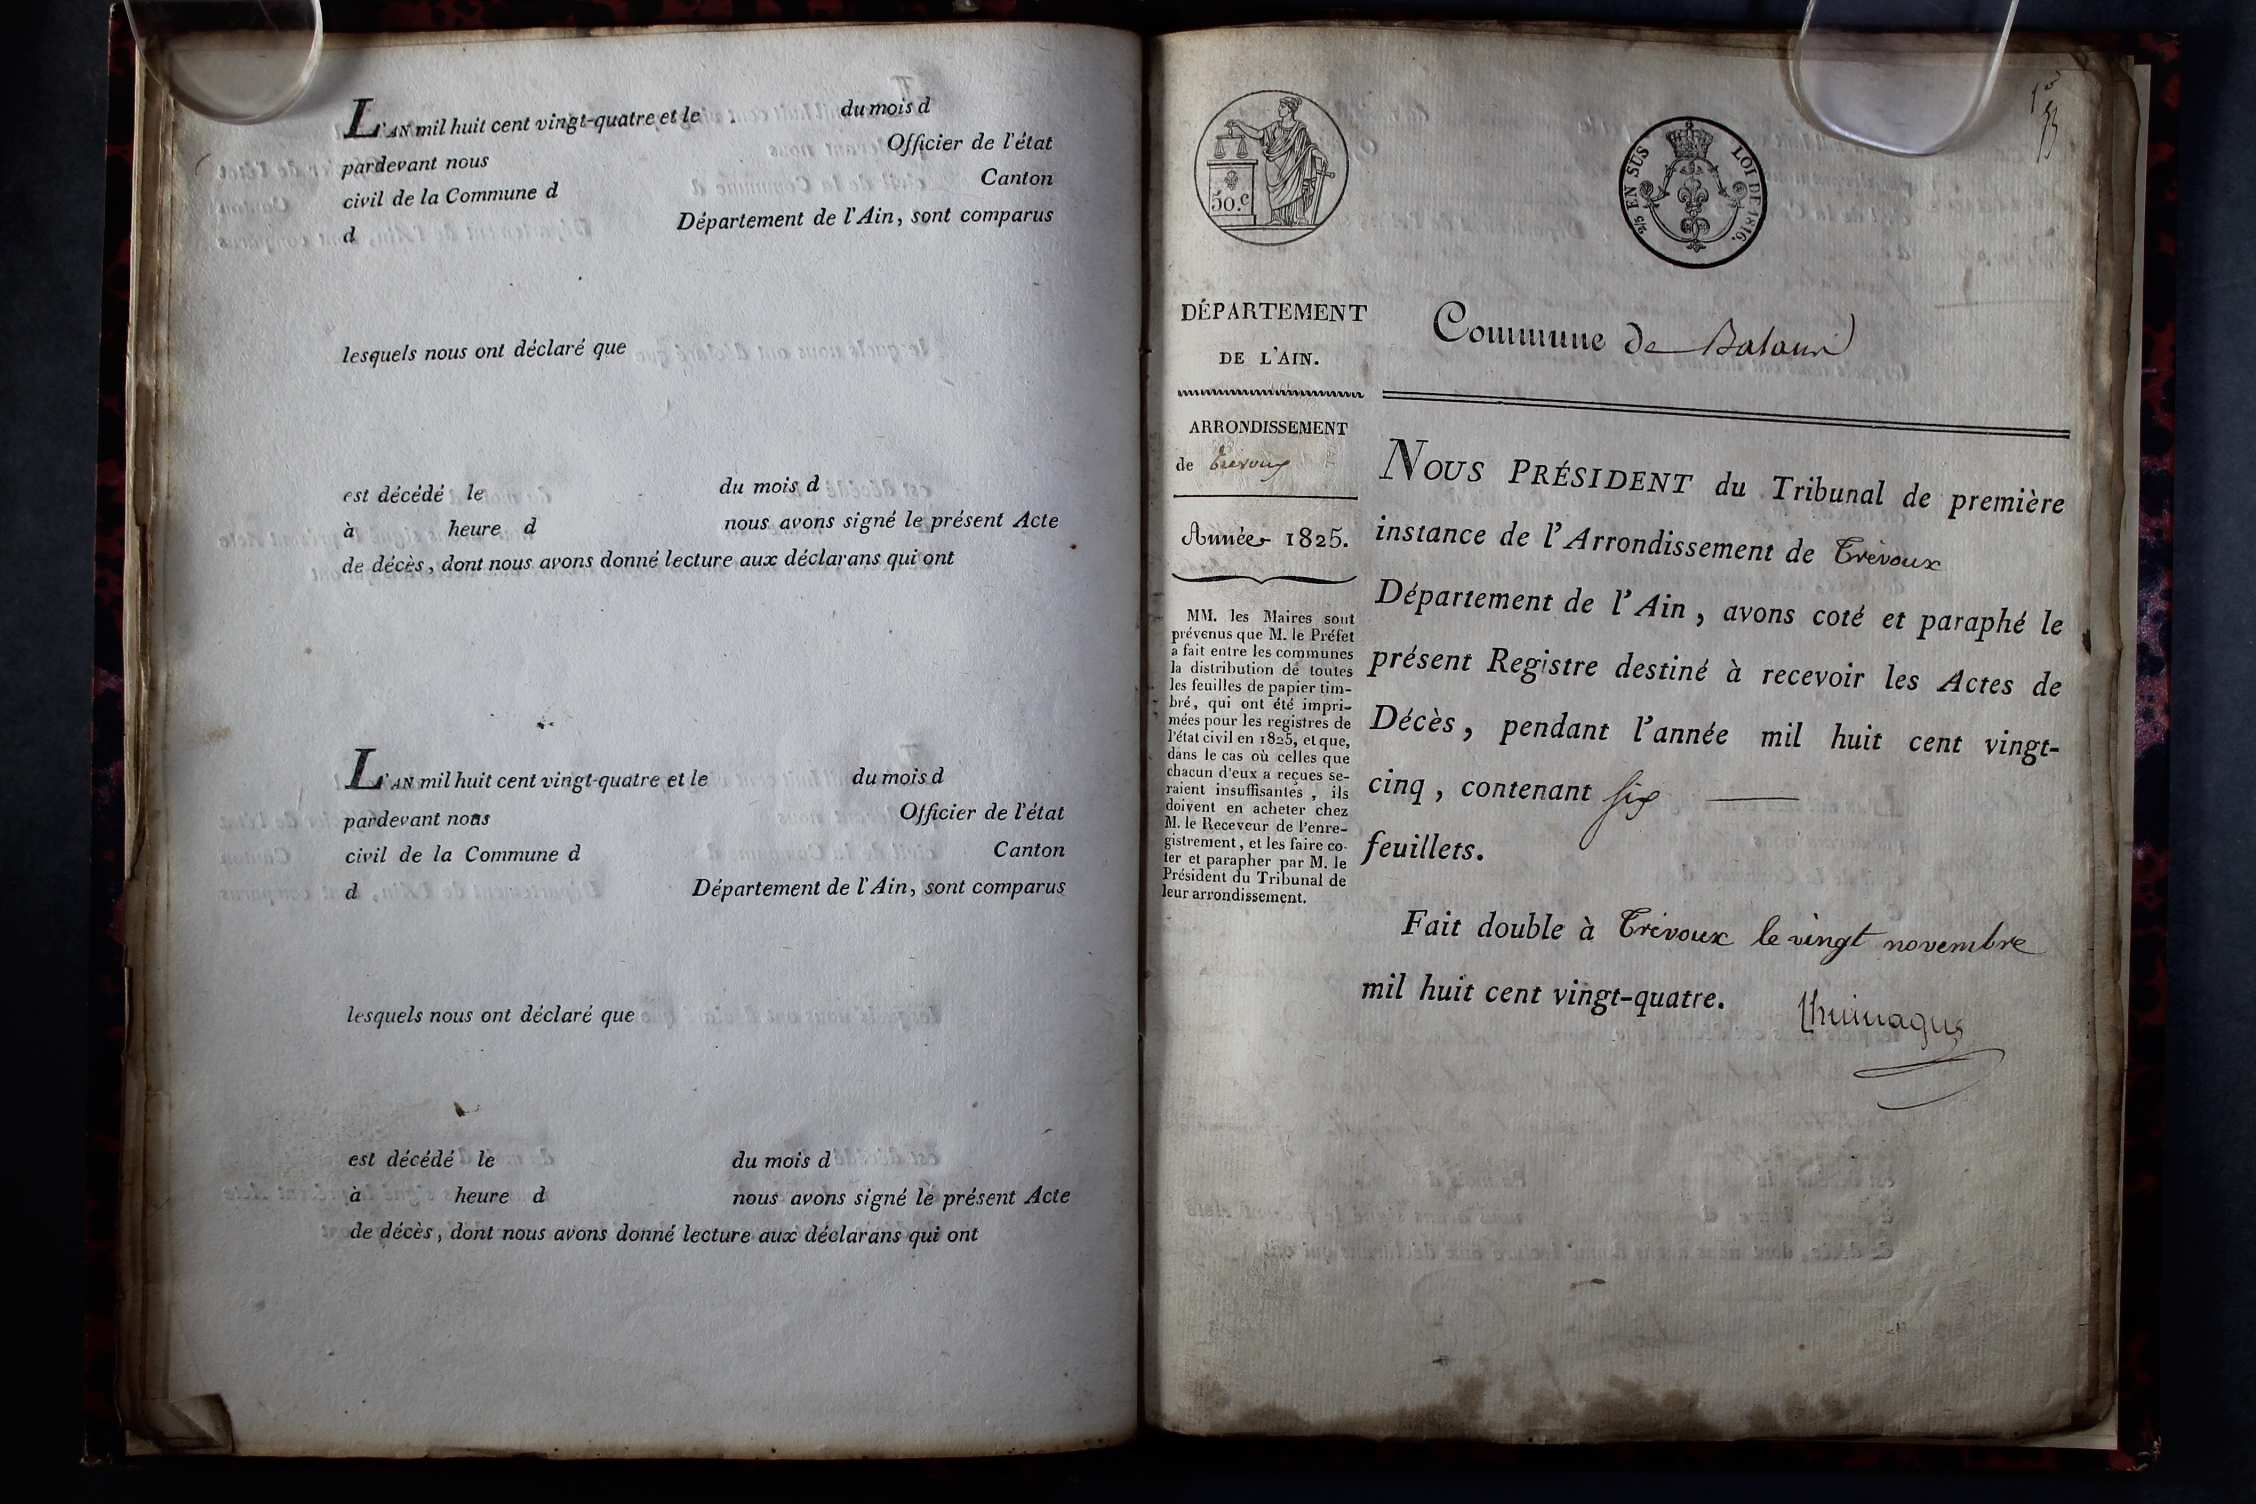 L'AN mil huit cent vingt-quatre et le du mois d
pardevant nous Officier de l'état
civil de la Commune d Canton
d Département de l'Ain, sont comparus
lesquels nous ont déclaré que
est décédé le du mois d
à heure d nous avons signé le présent Acte
de décès, dont nous avons donné lecture aux déclarans qui ont
L'AN mil huit cent vingt-quatre et le du mois d
pardevant nous Officier de l'état
civil de la Commune d Canton
d Département de l'Ain, sont comparus
lesquels nous ont déclaré que
est décédé le du mois d
à heure d nous avons signé le présent Acte
de décès, dont nous avons donné lecture aux déclarans qui ont
50.c
EN SUS LOI DE 1816.
DÉPARTEMENT
DE L'AIN.
ARRONDISSEMENT
de Trévoux
Année 1825.
MM. les Maires sont
prévenus que M. le Préfet
a fait entre les communes
la distribution de toutes
les feuilles de papier tim-
bré, qui ont été impri-
mées pour les registres de
l'état civil en 1825, et que,
dans le cas où celles que
chacun d'eux a reçues se-
raient insuffisantes, ils
doivent en acheter chez
M. le Receveur de l'enre-
gistrement, et les faire co-
ter et parapher par M. le
Président du Tribunal de
leur arrondissement.
Commune de
NOUS PRÉSIDENT du Tribunal de première
instance de l'Arrondissement de Trévoux
Département de l'Ain, avons coté et paraphé le
présent Registre destiné à recevoir les Actes de
Décès, pendant l'année mil huit cent vingt-
cinq, contenant six
feuillets.
Fait double à Trévoux le vingt novembre
mil huit cent vingt-quatre.